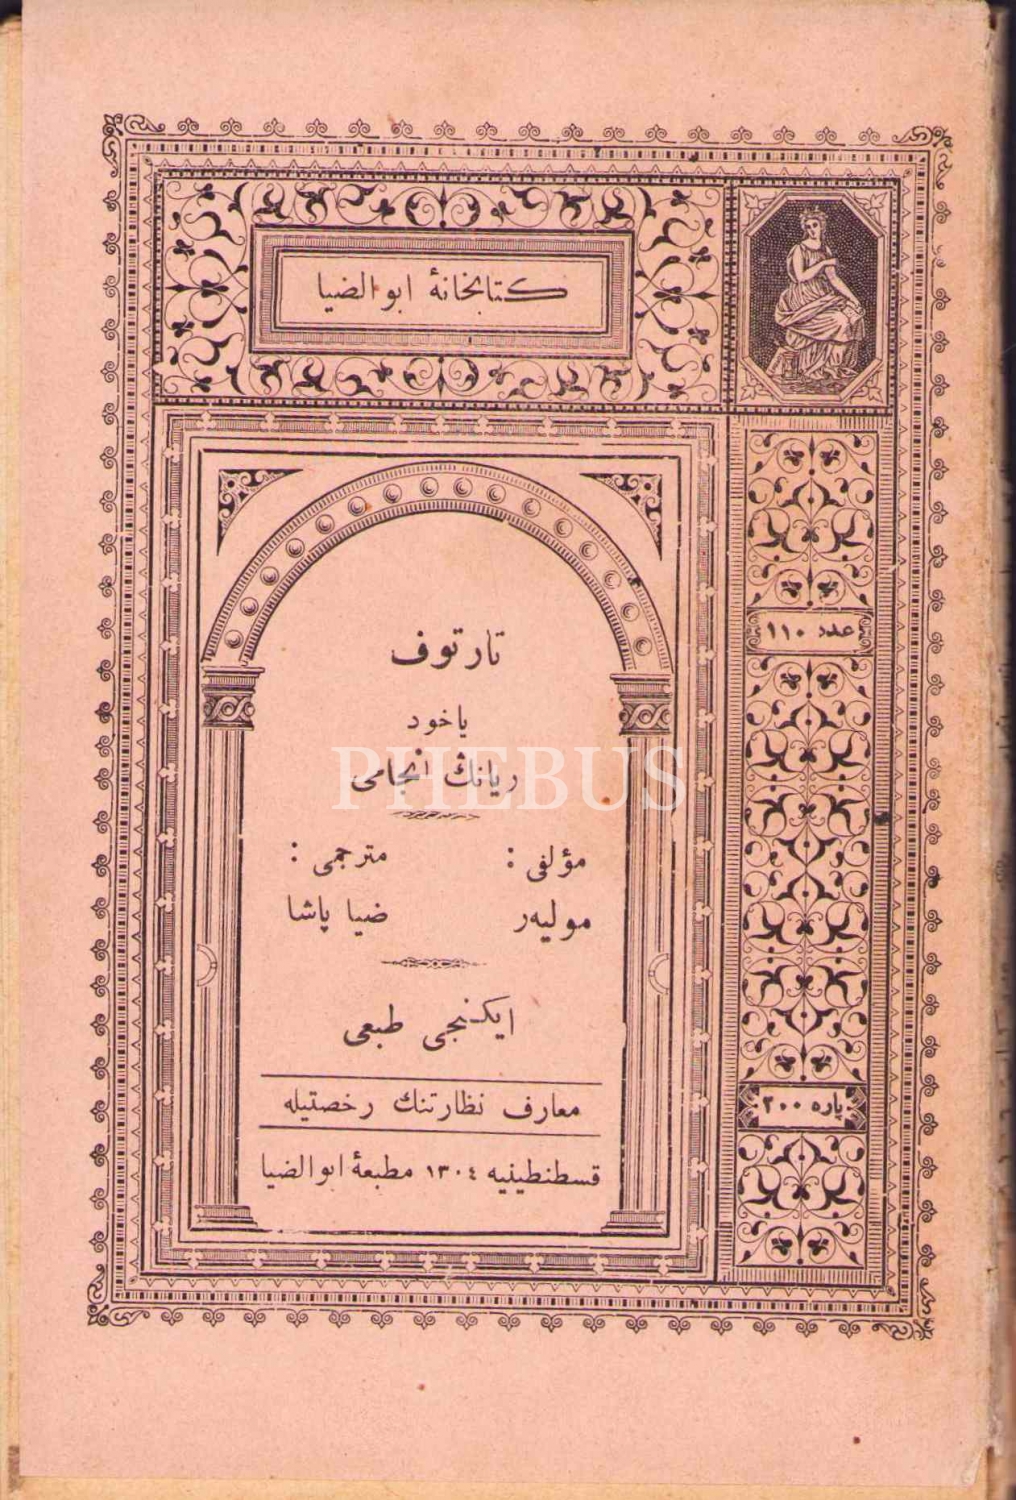 كتابخانهٔ ابوالضيا
عدد ١١٠
تارتوف
ياخود
ريانك انجامی
مؤلفی : مترجمی :
موليەر ضيا پاشا
ايكنجی طبعی
معارف نظارتنك رخصتيله
قسطنطينيه ١٣٠٤ مطبعهٔ ابوالضيا
پاره ٢٠٠
PHEBUS